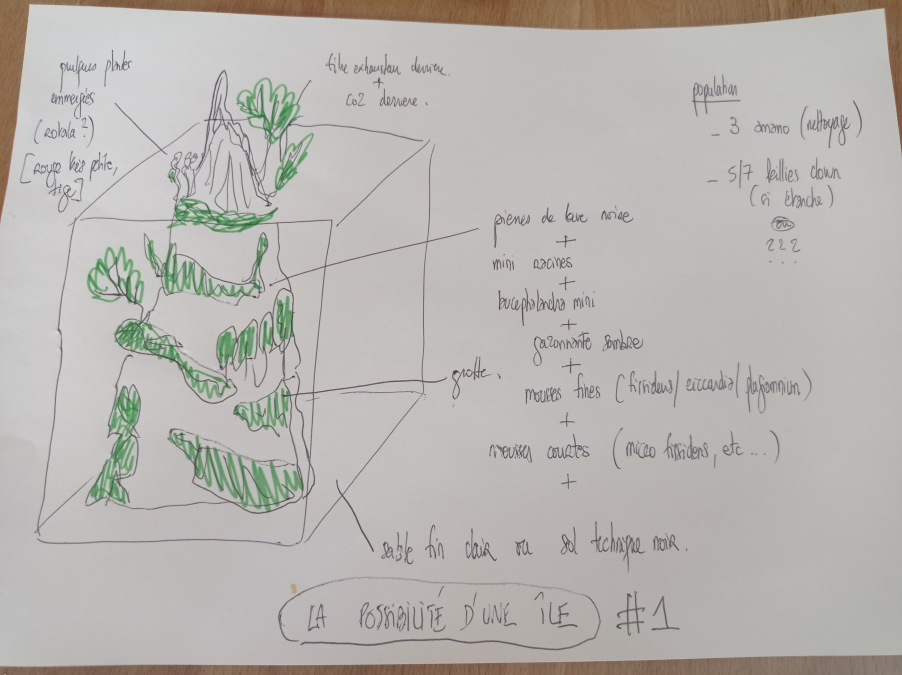 quelques plantes
emmergées
(rotala ?)
[rouge très petite,
tige]
filtre exhaustan derrière.
+
CO2 derrière.
population
- 3 amano (nettoyage)
- 5/7 killies clown
(si étanche)
ou
???
...
pierres de lave noire
+
mini racines
+
bucephalandra mini
+
gazonnante sombre
+
mousses fines (fissidens/riccardia/plagiomnium)
+
mousses courtes (micro fissidens, etc...)
+
grotte.
sable fin clair ou sol technique noir.
LA POSSIBILITÉ D'UNE ÎLE #1